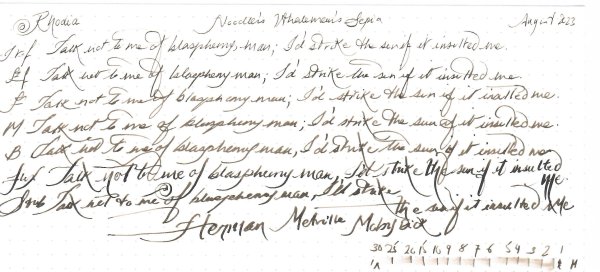 Rhodia Noodler's Whaleman's Sepia August 2023
Talk not to me of blasphemy, man; I'd strike the sun if it insulted me.
Ef Talk not to me of blasphemy man; I'd strike the sun if it insulted me.
F Talk not to me of blasphemy man; I'd strike the sun if it insulted me.
M Talk not to me of blasphemy man; I'd strike the sun if it insulted me.
B Talk not to me of blasphemy man, I'd strike the sun if it insulted me
Talk not to me of blasphemy man, I'd strike the sun if it insulted me.
Talk not to me of blasphemy man, I'd strike the sun if it insulted me
Herman Melville Moby Dick
30 25 20 15 10 9 8 7 6 5 4 3 2 1